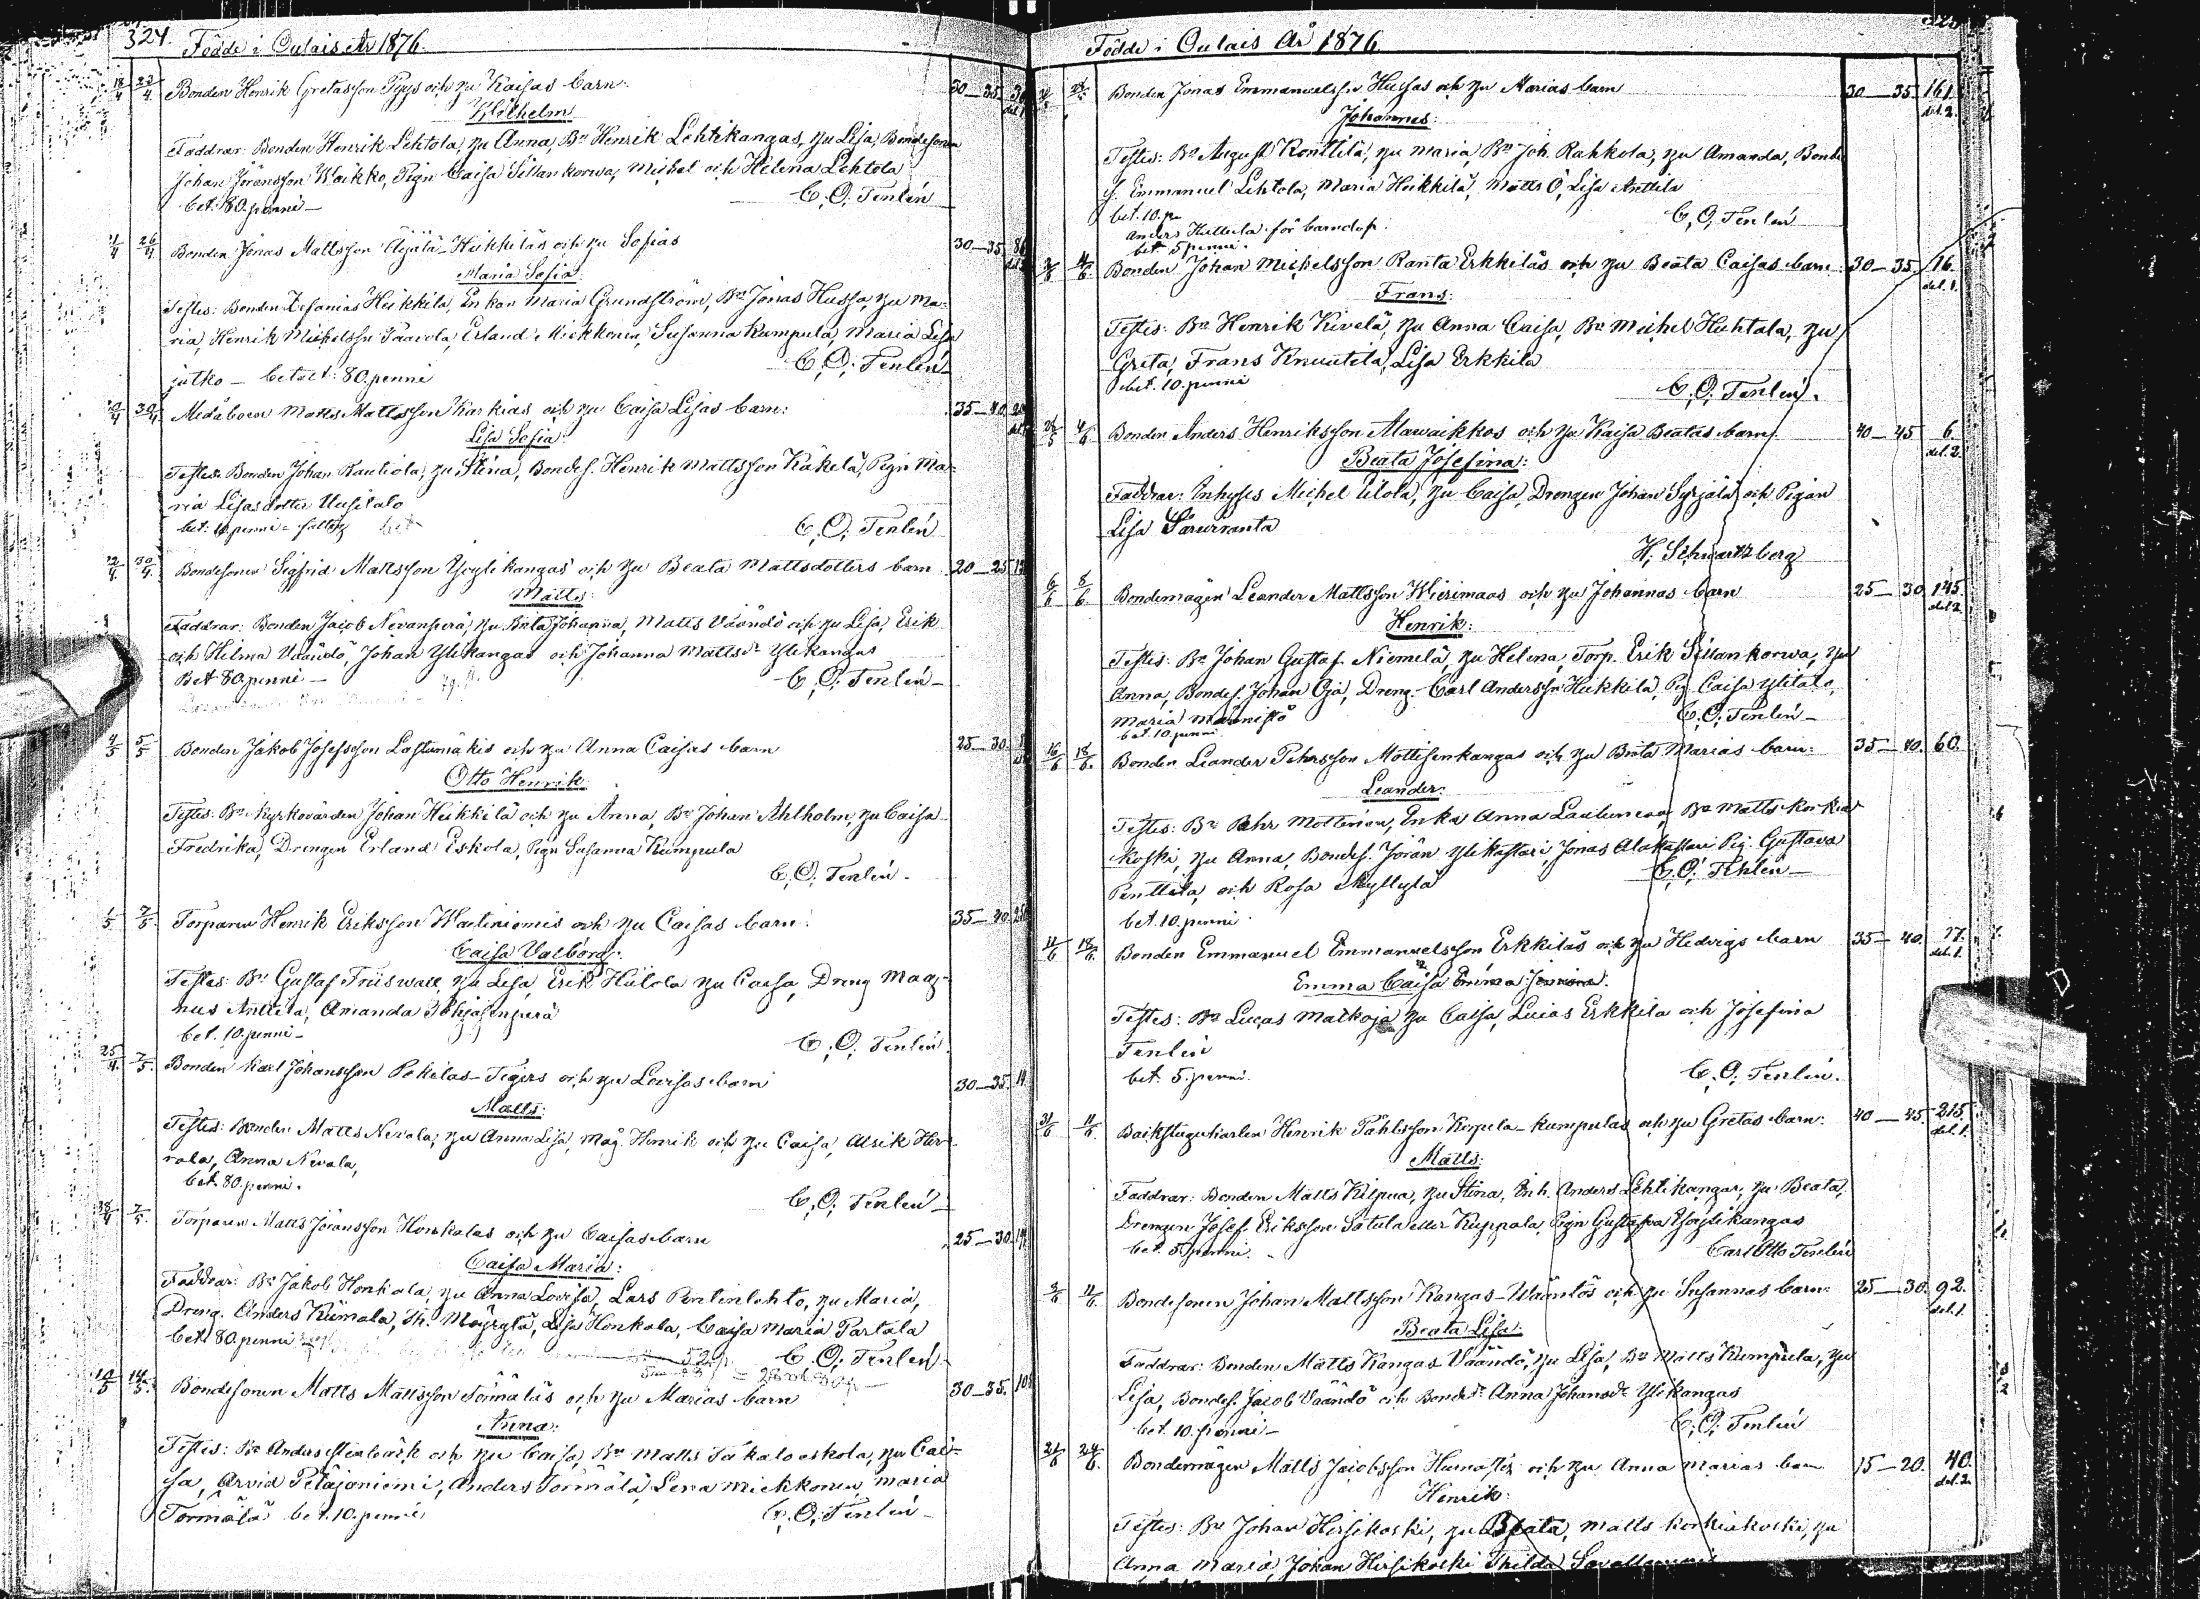 324. Födde i Oulais År 1876.
18/4 23/4 Bonden Henrik Gretasson Pigs och hu Kaisas barn. 30–35
Wilhelm
Faddrar: Bonden Henrik Lehtola, hu Anna, Bn Henrik Lehtikangas, hu Lisa, Bondesonen
Johan Jöransson Waikko, Pign Caisa Sillankorwa, Michel och Helena Lehtola
bet. 80. penni — C. O. Tenlén
26/4 Bonden Jonas Mattsson Äijälä-Heikkiläs och hu Sofias 30–35
Maria Sofia
Testes: Bonden Zefanias Heikkilä, Enkan Maria Grundström, Bn Jonas Hussa, hu Ma-
ria, Henrik Michelsson Paavola, Erland Mickkonen, Susanna Kumpula, Maria Lisa
C. O. Tenlén
jutko — betalt: 80. penni
30/4 Matts Mattsson Karkias och hu Caisa Lisas barn: 35–40
Lisa Sofia:
Testes: Bonden Johan Rautiola, hu Stina, Bondes. Henrik Mattsson Käkelä, Pign Ma-
ria Lisasdotter Uusitalo
bet: 10 penni C. O. Tenlén
22/4 30/4 Bondesonen Sigfrid Mattsson Ylikangas och hu Beata Mattsdotters barn 20–25
Matts:
Faddrar: Bonden Jacob Nevanperä, hu Brita Johanna, Matts Väändö och hu Lisa, Erik
och Hilma Väändö, Johan Ylikangas och Johanna Mattsdr Ylikangas
Bet 80. penni — C. O. Tenlén —
4/5 5/5 Bonden Jakob Josefsson Lostumäkis och hu Anna Caisas barn 25–30.
Otto Henrik:
Testes: Bn Kyrkovärden Johan Heikkilä och hu Anna, Bn Johan Ahlholm, hu Caisa
Fredrika, Drengen Erland Eskola, Pign Susanna Kumpula
C. O. Tenlén.
1/5 7/5 Torparen Henrik Eriksson Wartiniemis och hu Caisas barn: 35–40
Caisa Valborg:
Testes: Bn Gustaf Friiswall, hu Lisa, Erik Hülola hu Caisa, Dreng Mag-
nus Anttila, Amanda Pohjasenperä
bet. 10. penni — C. O. Tenlén
25/4 7/5 Bonden Karl Johansson Pokelas-Tigers och hu Lovisas barn 30–35.
Matts:
Testes: Bonden Matts Nevala, hu Anna Lisa, Måg Henrik och hu Caisa, Alrik Her-
rala, Anna Nevala,
bet. 80. penni. C. O. Tenlén —
28/4 7/5 Torparen Matts Jöransson Honkalas och hu Caisas barn 25–30
Caisa Maria:
Faddrar: Bn Jakob Honkala, hu Anna Lovisa, Lars Pentinlehto, hu Maria,
Dreng. Anders Kümala, Th. Möyrylä, Lisa Honkala, Caisa Maria Partala
bet. 80. penni C. O. Tenlén
14/5 Bondesonen Matts Mattsson Törmäläs och hu Marias barn 30–35.
Anna:
Testes: Bn Anders Stenbäck och hu Caisa, Bn Matts Takaloeskola, hu Cai-
sa, Arvid Petäjäniemi, Anders Törmälä, Lena Mickkonen, Maria
Törmälä bet. 10. penni C. O. Tenlén —
Födde i Oulais År 1876
Bonden Jonas Emmanuelsson Hussas och hu Marias barn 30–35 161. del. 2.
Johannes:
Testes: Bn August Konttila, hu Maria Bn Joh. Rahkola, hu Amanda, Bonde
s. Emmanuel Lehtola, Maria Heikkilä, Matts O, Lisa Anttila
bet. 10. p. C. O. Tenlén
Anders Huttula för barndop.
bet 5 penni.
4/6 Bonden Johan Michelsson Ranta Erkkiläs och hu Beata Caisas barn. 30–35 16. del. 1.
Frans:
Testes: Bn Henrik Kivelä, hu Anna Caisa, Bn Michel Huhtala, hu
Greta, Frans Knuutila, Lisa Erkkilä
bet. 10. penni C. O. Tenlén.
4/6 Bonden Anders Henriksson Alawaikkos och hu Kaisa Beatas barn. 40–45 6. del. 2.
Beata Josefina:
Faddrar: Inhyses Michel Ulola, hu Caisa, Drengen Johan Syrjälä och Pigan
Lisa Saurranta
H. Schwartzberg
6/6 8/6 Bondemågen Leander Mattsson Wierimaas och hu Johannas barn 25–30 145. del. 2
Henrik:
Testes: Bn Johan Gustaf Niemelä, hu Helena, Torp. Erik Sillankorwa, hu
Anna, Bondes. Johan Oja, Dreng. Carl Andersson Heikkilä, Pig. Caisa Ylitalo,
Maria Männistö C. O. Tenlén —
bet. 10. penni
16/6 18/6 Bonden Leander Pehrsson Mottisenkangas och hu Brita Marias barn: 35–40. 60.
Leander:
Testes: Bn Pehr Mottinen, Enka Anna Laulumaa, Bn Matts Korkia
koski, hu Anna, Bondes. Jöran Ylikastari, Jonas Alakastari Pig. Gustava
Penttilä, och Rosa Myllylä C. O. Tenlén —
bet. 10. penni.
11/6 18/6 Bonden Emmanuel Emmanuelsson Erkkiläs och hu Hedvigs barn 35–40. 17. del. 1.
Emma Caisa
Testes: Bn Lucas Matkoja hu Caisa, Lucas Erkkilä och Josefina
Tenlén
bet. 5. penni. C. O. Tenlén.
11/6 Backstugukarlen Henrik Påhlsson Korpela-Kumpulas och hu Gretas barn: 40–45. 215. del. 1.
Matts:
Faddrar: Bonden Matts Kilpua, hu Stina, Inh. Anders Lehtikangas, hu Beata,
Drengen Josef Eriksson Satula eller Kuppala, Pign Gustafva Ylikangas
bet. 5 penni. Carl Otto Tenlén
11/6 Bondesonen Johan Mattsson Kangas-Wääntös och hu Susannas barn: 25–30. 92. del. 1.
Beata Lisa:
Faddrar: Bonden Matts Kangas Väändö, hu Lisa, Bn Matts Kumpula, hu
Lisa, Bondes. Jacob Väändö och Bondedr Anna Johansdr Ylikangas
bet. 10. penni — C. O. Tenlén
21/6 24/6 Bondemågen Matts Jacobsson och hu Anna Marias barn 15–20. 40. del. 2
Henrik:
Testes: Bn Johan Hirsikoski, hu Beata, Matts Korkiakoski, hu
Anna Maria, Johan Hirsikoski Thilda